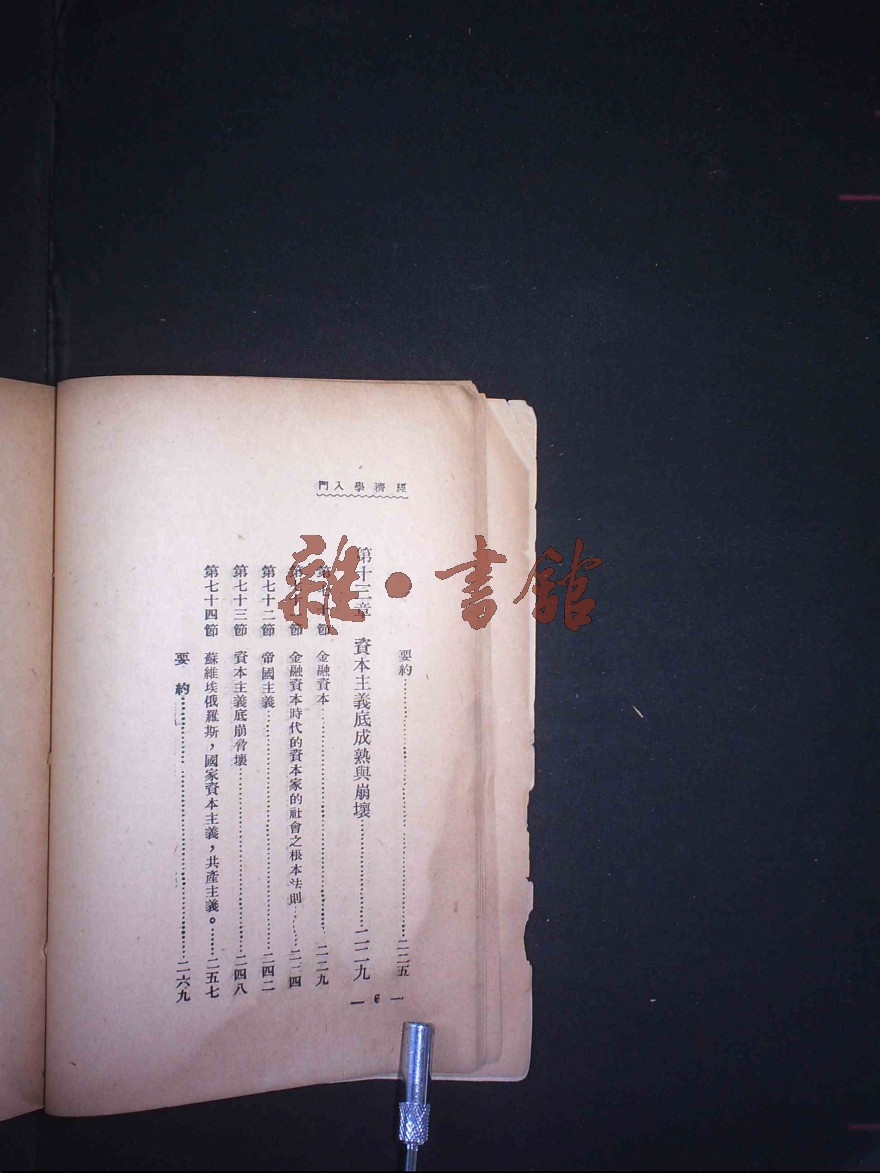 經濟學入門
要約……二二五
第十三章 資本主義底成熟與崩壞……二二九
節 金融資本……二二九
節 金融資本時代的資本家的社會之根本法則……二三四
第七十二節 帝國主義……二四二
第七十三節 資本主義底崩脅壞……二四八
第七十四節 蘇維埃俄羅斯，國家資本主義，共產主義。……二五七
要約……二六九
— 6 —
雜·書館